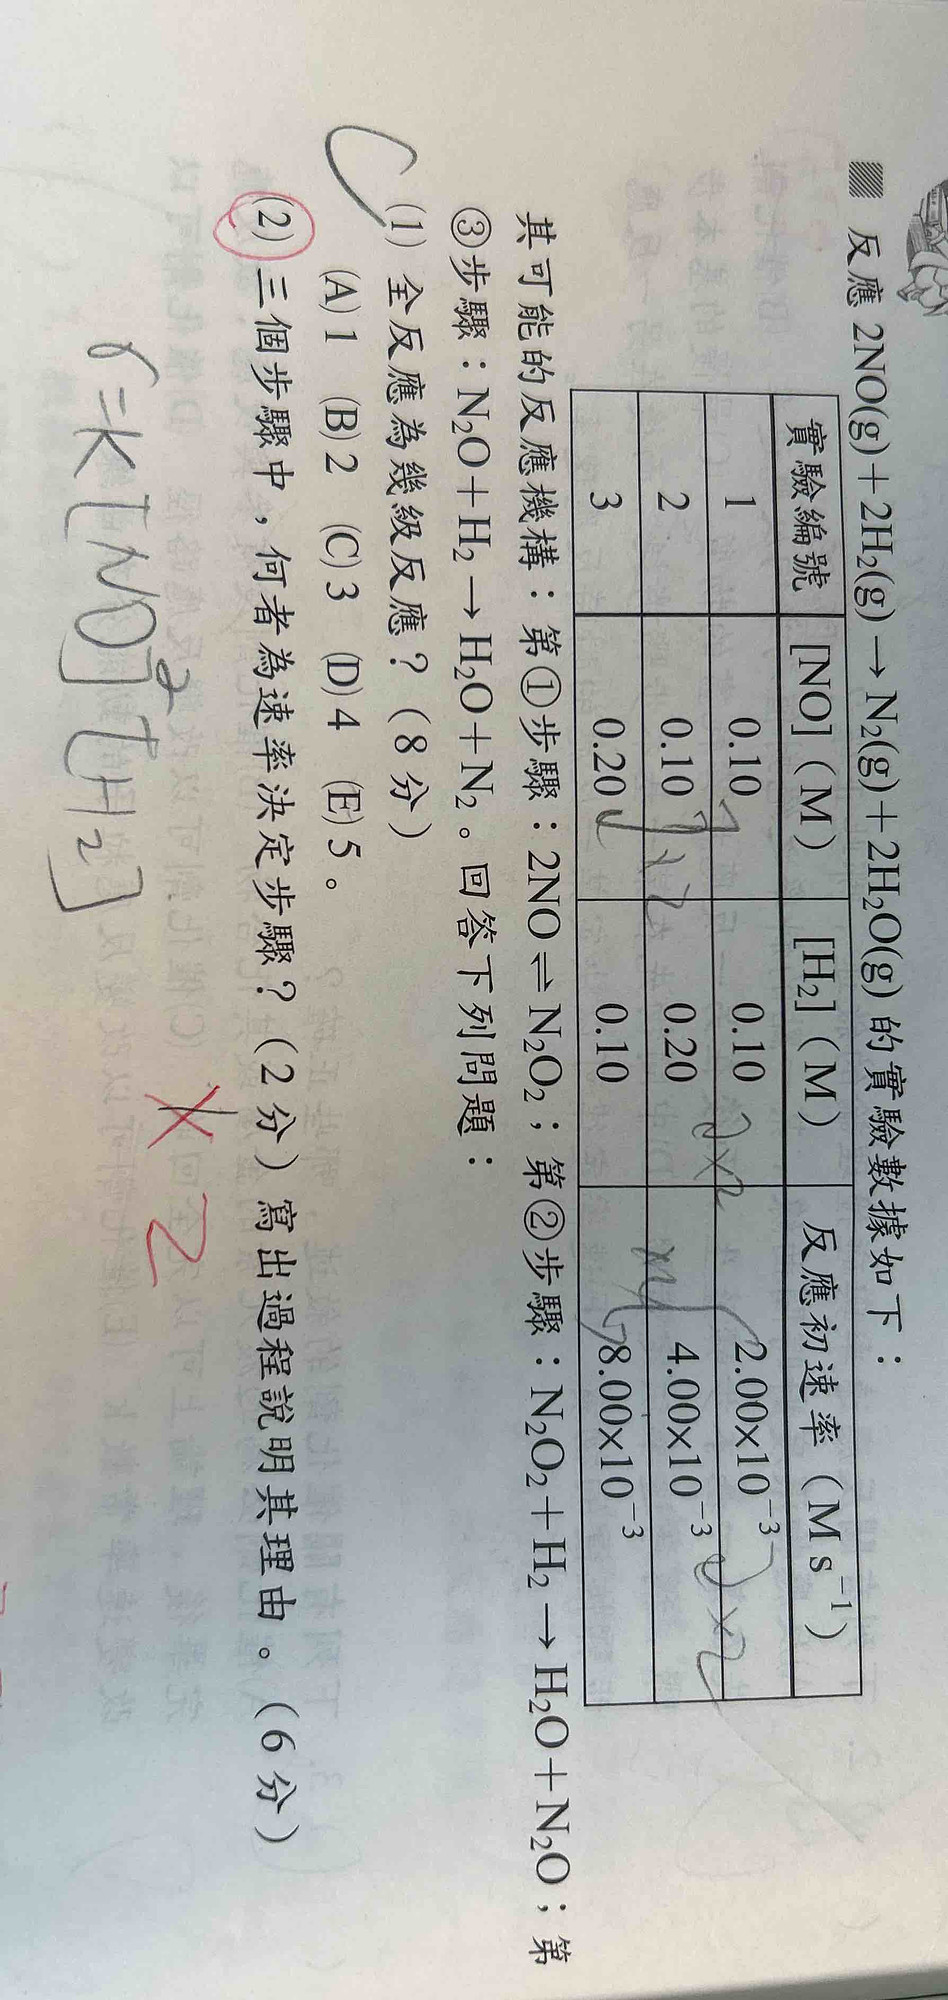 反應 2NO(g)+2H₂(g)→N₂(g)+2H₂O(g) 的實驗數據如下：
實驗編號 [NO]（M） [H₂]（M） 反應初速率（M s⁻¹）
1 0.10 0.10 2.00×10⁻³
2 0.10 0.20 4.00×10⁻³
3 0.20 0.10 8.00×10⁻³
×2
×2
×4
×2
其可能的反應機構：第①步驟：2NO⇌N₂O₂；第②步驟：N₂O₂+H₂→H₂O+N₂O；第
③步驟：N₂O+H₂→H₂O+N₂。回答下列問題：
(1) 全反應為幾級反應？（8分）
(A)1 (B)2 (C)3 (D)4 (E)5。
(2) 三個步驟中，何者為速率決定步驟？（2分）寫出過程說明其理由。（6分）
× 2
r=k[NO]²[H₂]